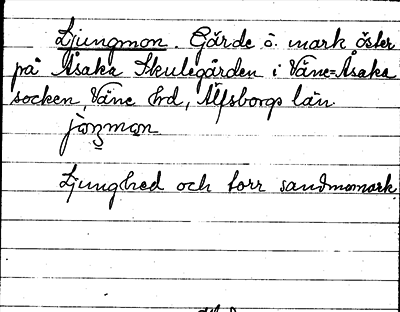 Ljungmon. Gärde o. mark öster
på Åsaka Skulegården i Väne-Åsaka
socken, Väne hd, Älfsborgs län
Ljunghed och torr sandmomark.